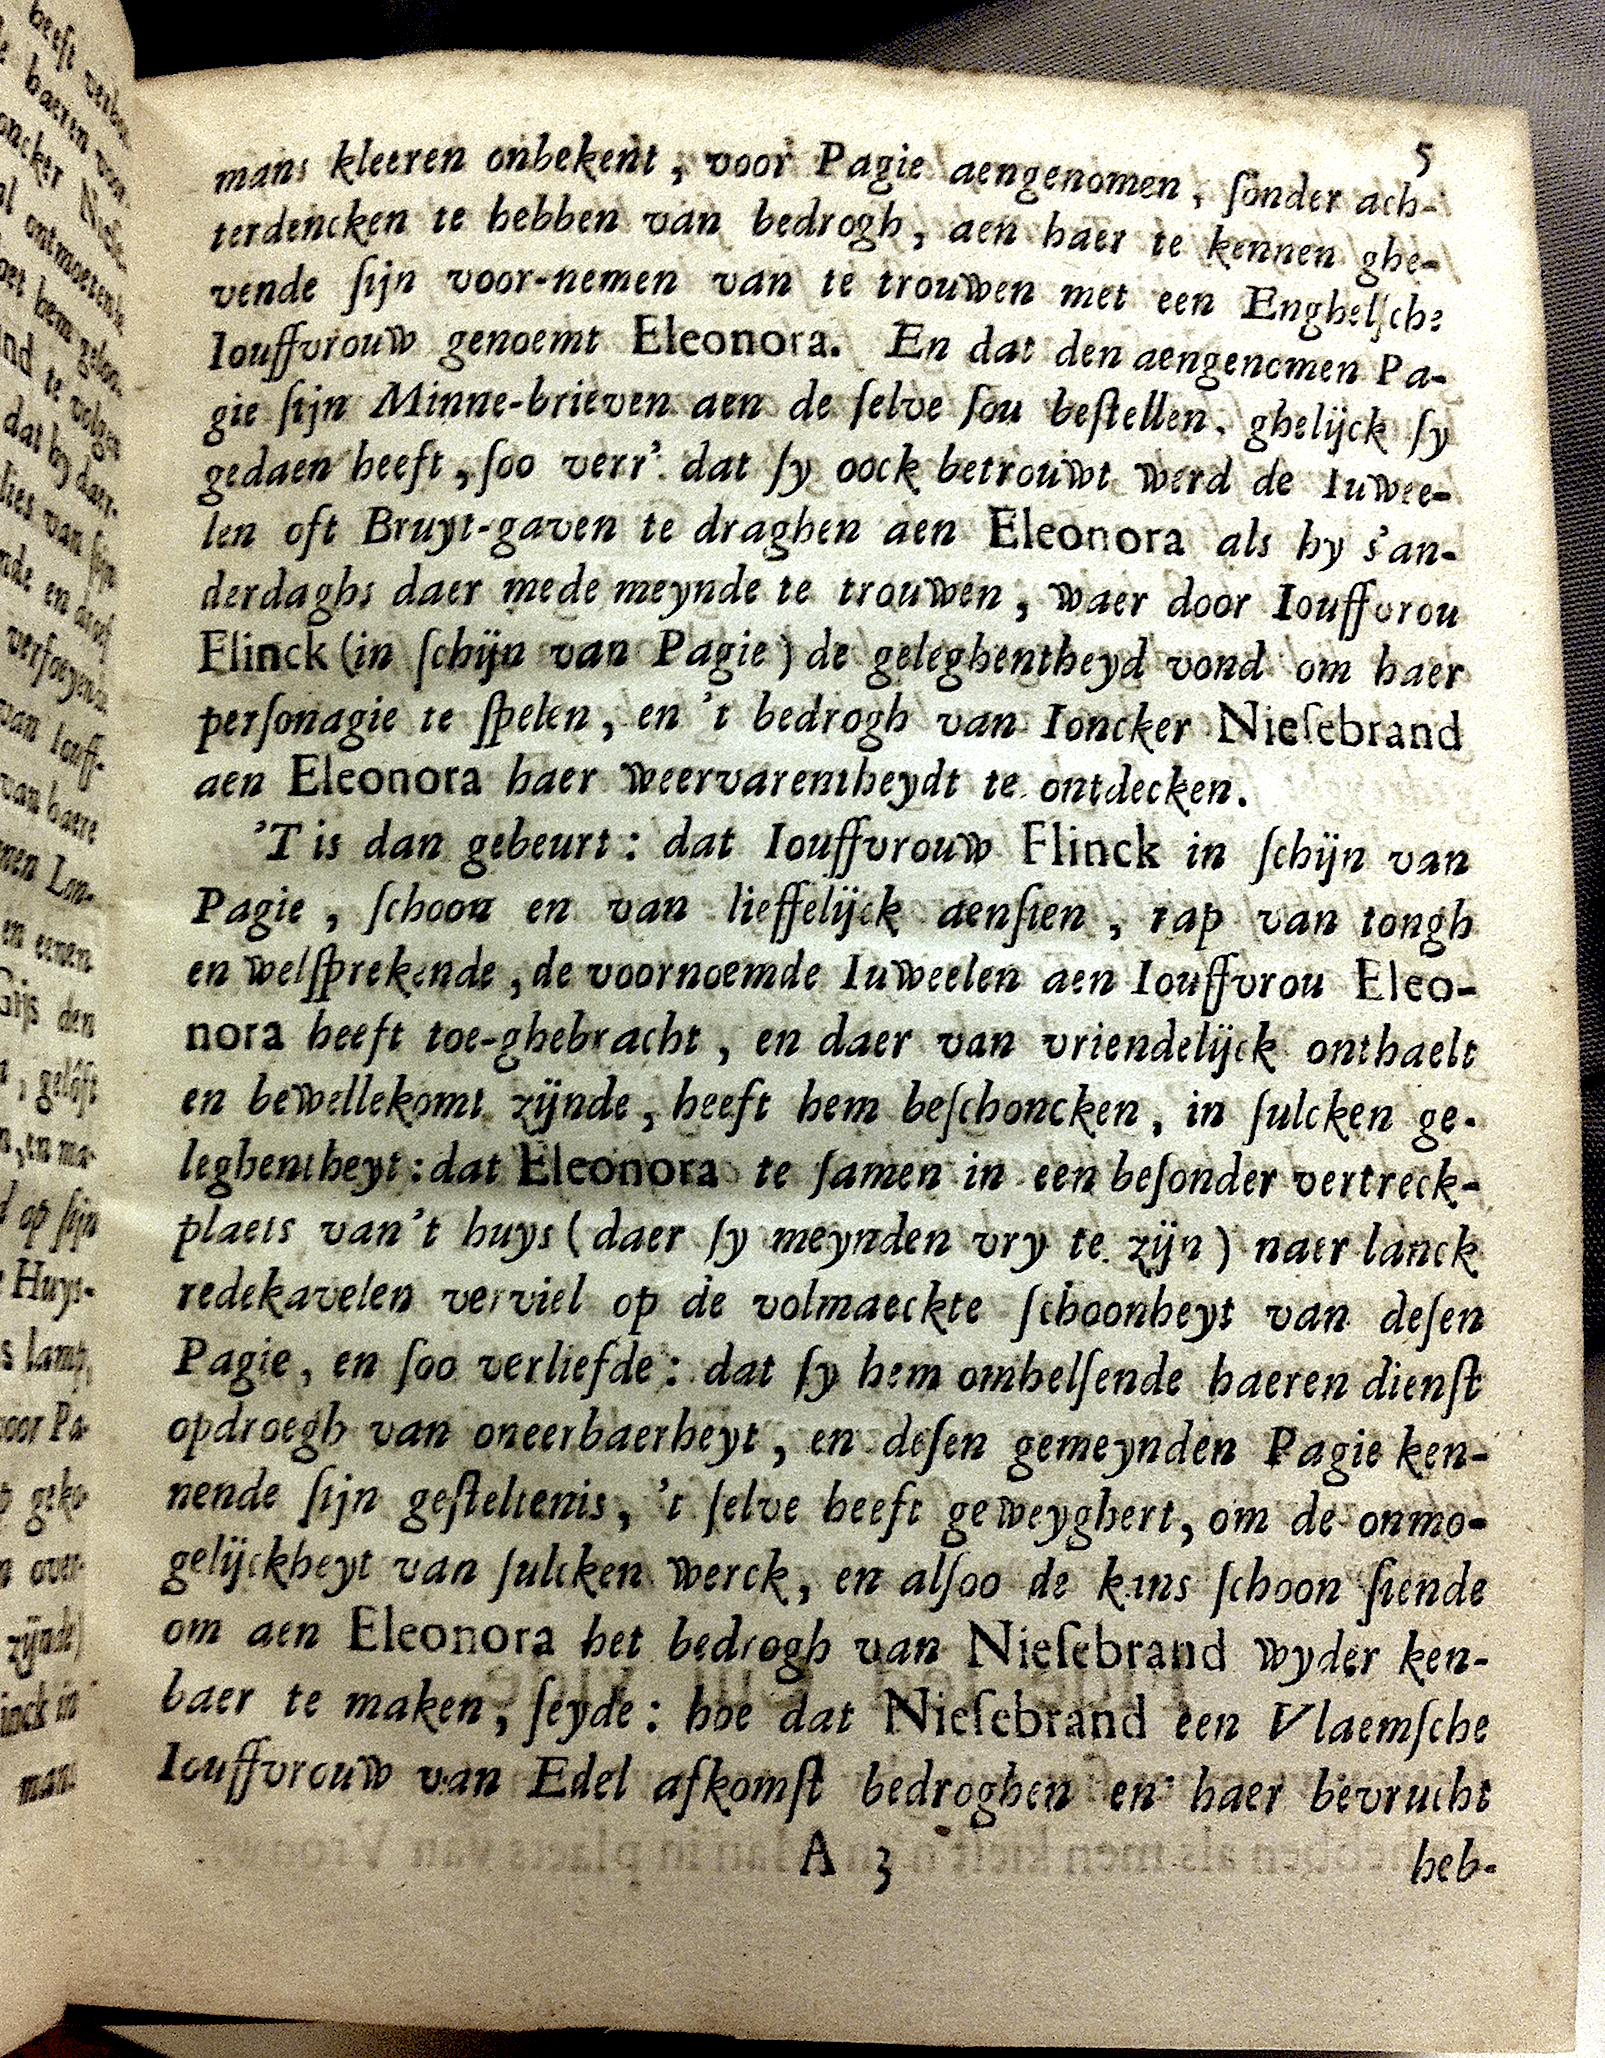 5
mans kleeren onbekent, voor Pagie aengenomen, ſonder ach-
terdencken te hebben van bedrogh, aen haer te kennen ghe-
vende ſijn voor-nemen van te trouwen met een Enghelſche
Iouffvrouw genoemt Eleonora. En dat den aengenomen Pa-
gie ſijn Minne-brieven aen de ſelve ſou beſtellen, ghelijck ſy
gedaen heeft, ſoo verr' dat ſy oock betrouwt werd de Iuwee-
len oft Bruyt-gaven te draghen aen Eleonora als hy s'an-
derdaghs daer mede meynde te trouwen, waer door Iouffvrou
Flinck (in ſchijn van Pagie) de geleghentheyd vond om haer
perſonagie te ſpelen, en 't bedrogh van Ioncker Nieſebrand
aen Eleonora haer weervarentheydt te ontdecken.
'T is dan gebeurt: dat Iouffvrouw Flinck in ſchijn van
Pagie, ſchoon en van lieffelijck aenſien, rap van tongh
en welſprekende, de voornoemde Iuweelen aen Iouffvrou Eleo-
nora heeft toe-ghebracht, en daer van vriendelijck onthaelt
en bewellekomt zijnde, heeft hem beſchoncken, in ſulcken ge-
leghentheyt: dat Eleonora te ſamen in een beſonder vertreck-
plaets van 't huys (daer ſy meynden vry te zijn) naer lanck
redekavelen verviel op de volmaeckte ſchoonheyt van deſen
Pagie, en ſoo verliefde: dat ſy hem omhelſende haeren dienſt
opdroegh van oneerbaerheyt, en deſen gemeynden Pagie ken-
nende ſijn geſteltenis, 't ſelve heeft geweyghert, om de onmo-
gelijckheyt van ſulcken werck, en alſoo de kans ſchoon ſiende
om aen Eleonora het bedrogh van Nieſebrand wyder ken-
baer te maken, ſeyde: hoe dat Nieſebrand een Vlaemſche
Iouffvrouw van Edel afkomſt bedroghen en haer bevrucht
A 3 heb-